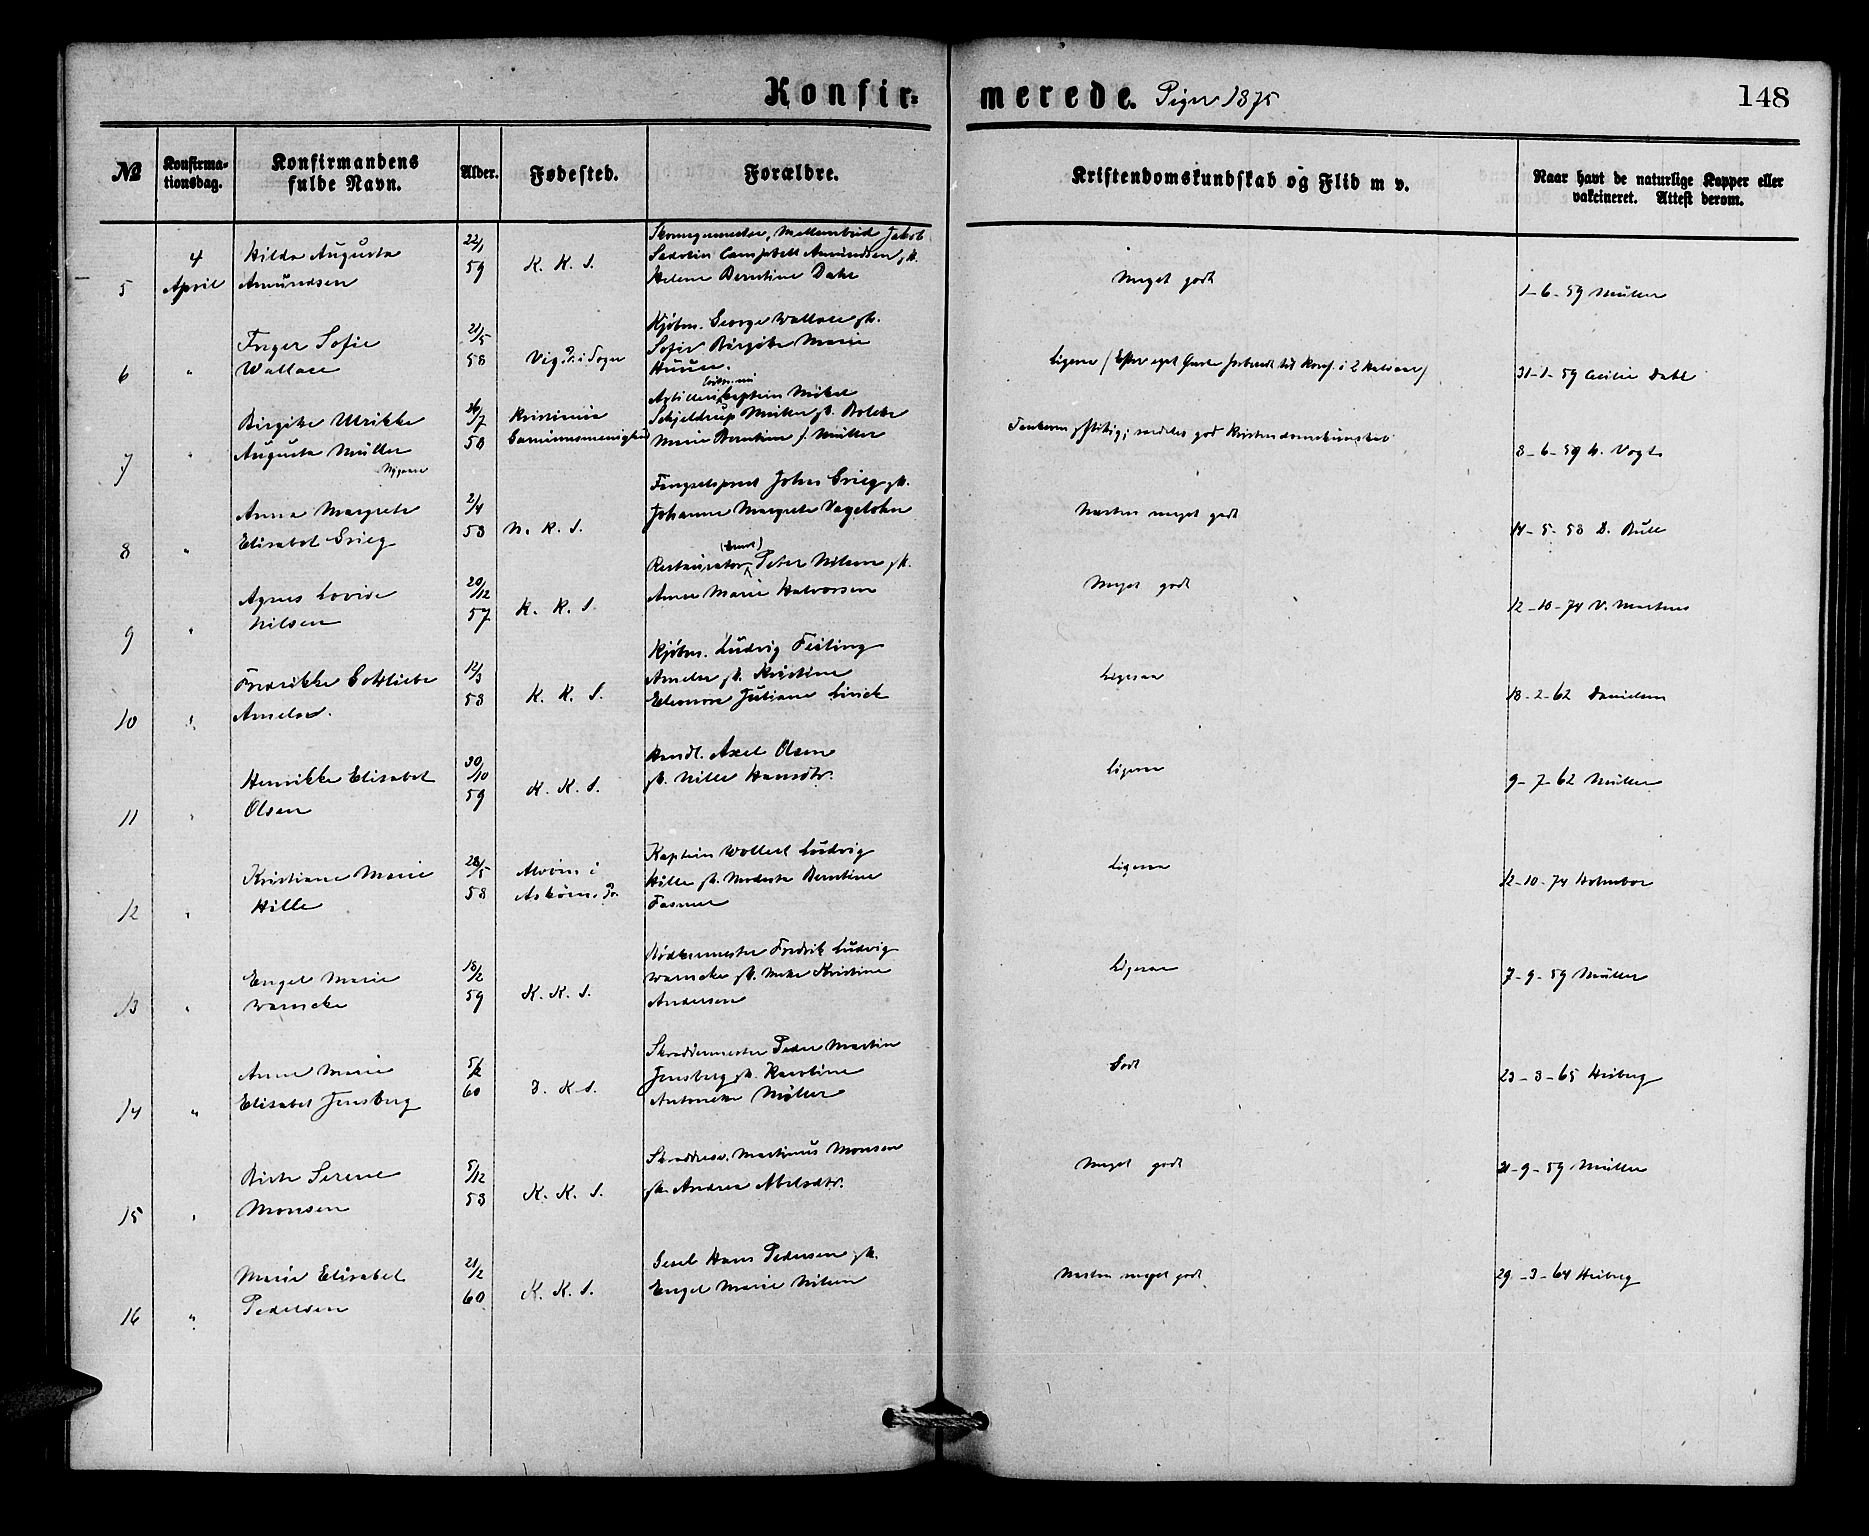 Konfir=
merede. Piger 1875
148
№
Konfirma=
tionsdag.
Konfirmandens
fulde Navn.
Alder.
Fødested.
Forældre.
Kristendomskundskab og Flid m v.
Naar havt de naturlige Kopper eller
vakcineret. Attest derom.
5
4
April
Hilda Augusta
Amundsen
22/1
59
K. K. S.
Jakob
Campbell Amundsen
Helene Berntine Dahl
Meget godt
1-6-59 Müller
6
"
Inger Sofie
Wallace
21/5
58
Vig Pr. i Sogn
Kjøbm. George Wallace
Sofie Birgitte Marie
31-1-59 Cecilie Dahl
7
"
Birgitte Ulrikke
Augusta Müller
26/7
58
Kristiania
Garnisonsmenighed
Artilleri Kaptein Mikal
Schjelderup Müller
Marie Berntine f. Müller
god
8-6-59 Vogt
8
"
Anna Margrete
Elisabet Grieg
2/4
58
N. K. S.
Johan Grieg
Johanne Margrete
Næsten meget godt
14-5-58 D. Bull
9
"
Agnes Lovise
Nilsen
20/12
57
K. K. S.
Restauratør Peter Nilsen
Anne Marie Halvorsen
Meget godt
12-10-74 V. Martens
10
"
Fredrikke Gottliebe
Ameln.
12/3
58
K. K. S.
Kjøbm. Ludvig
Ameln Kristine
Eleonore Juliane
Ligesaa
18-2-62 Danielsen
11
"
Henrikke Elisabet
Olsen
30/10
59
K. K. S.
Handl. Axel Olsen
Nille Hansdtr.
Ligesaa
9-7-62 Müller
12
"
Kristiane Marie
Hille
28/5
58
Alvøen i
Askøens Pr.
Kaptein Wollert Ludvig
Hille Modesta Berntine
Fasmer
Ligesaa
12-10-74 Holmboe
13
"
Engel Marie
Warncke
18/2
59
K. K. S.
Bødkermester Fredrik Ludvig
Warncke Kristine
Andersen
Ligesaa
7-9-59 Müller
14
"
Anne Marie
Elisabet Jensberg
5/2
60
D. K. S.
Skræddermester Peder Martin
Jensberg Karoline
Antonette Müller
Godt
23-3-65 Heiberg
15
"
Birte Serene
Monsen
5/12
58
K. K. S.
Martinus Monsen
Andrea Abelsdtr.
Meget godt
21-9-59 Müller
16
"
Marie Elisabet
Pedersen
21/2
60
K. K. S.
Hans Pedersen
Engel Marie Nilsen
Næsten meget godt
29-3-64 Heiberg